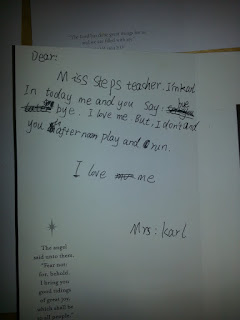 Dear:
Miss Steps teacher. I finked
In today me and you say: bye
bye. I love me But, I don't and
you afternoon play and run.
I love me
Mrs: karl
The angel
said unto them,
"Fear not:
for, behold,
I bring you
good tidings
of great joy,
which shall be
to all people."